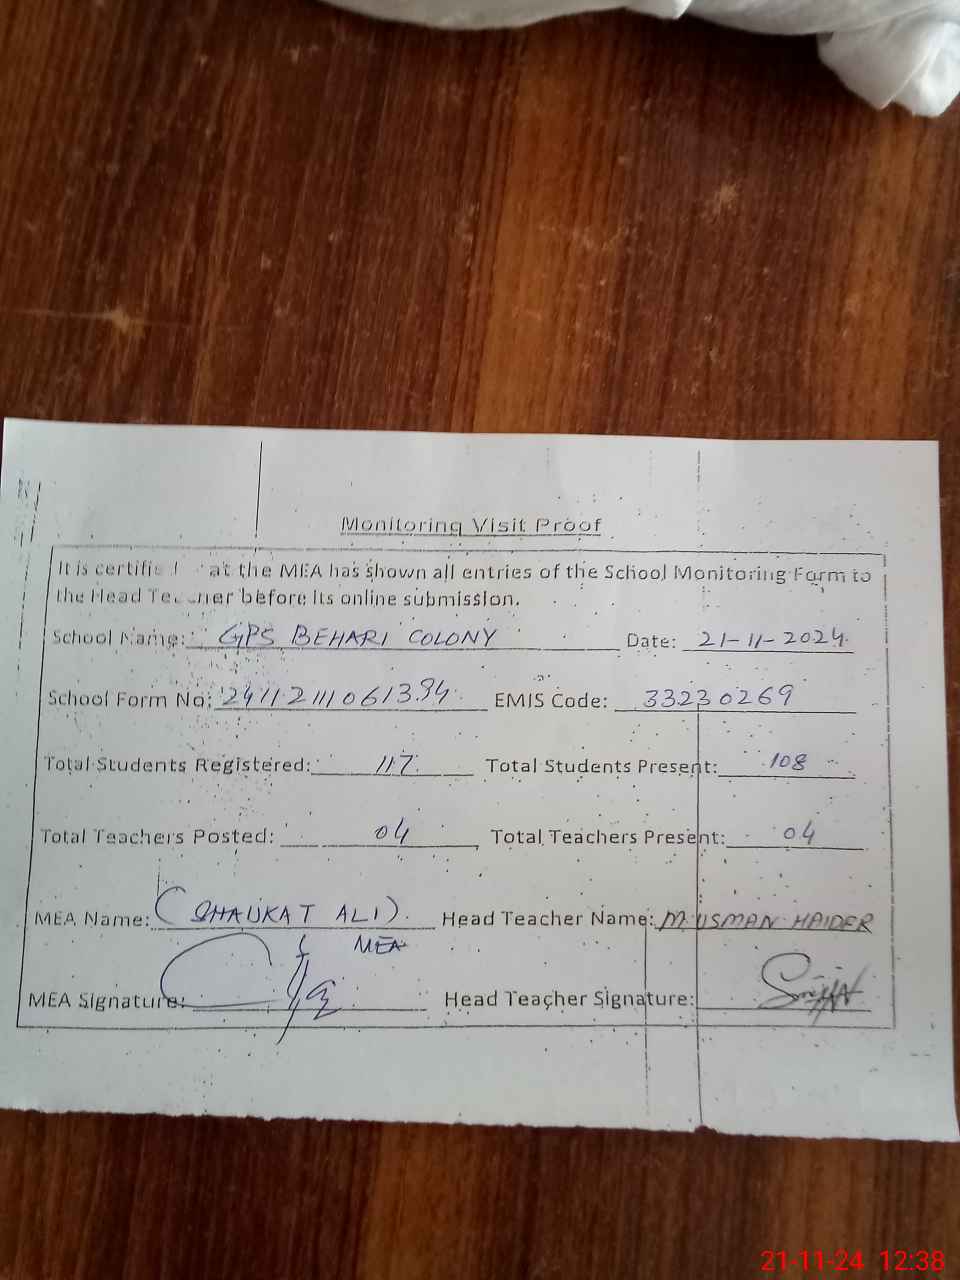 Monitoring Visit Proof
It is certified that the MEA has shown all entries of the School Monitoring Form to
the Head Teacher before its online submission.
School Name: GPS BEHARI COLONY Date: 21-11-2024
School Form No: EMIS Code: 33230269
Total Students Registered: 117 Total Students Present: 108
Total Teachers Posted: 04 Total Teachers Present: 04
MEA Name: (SHAUKAT ALI) Head Teacher Name: M USMAN HAIDER
MEA
MEA Signature: Head Teacher Signature:
21-11-24 12:38